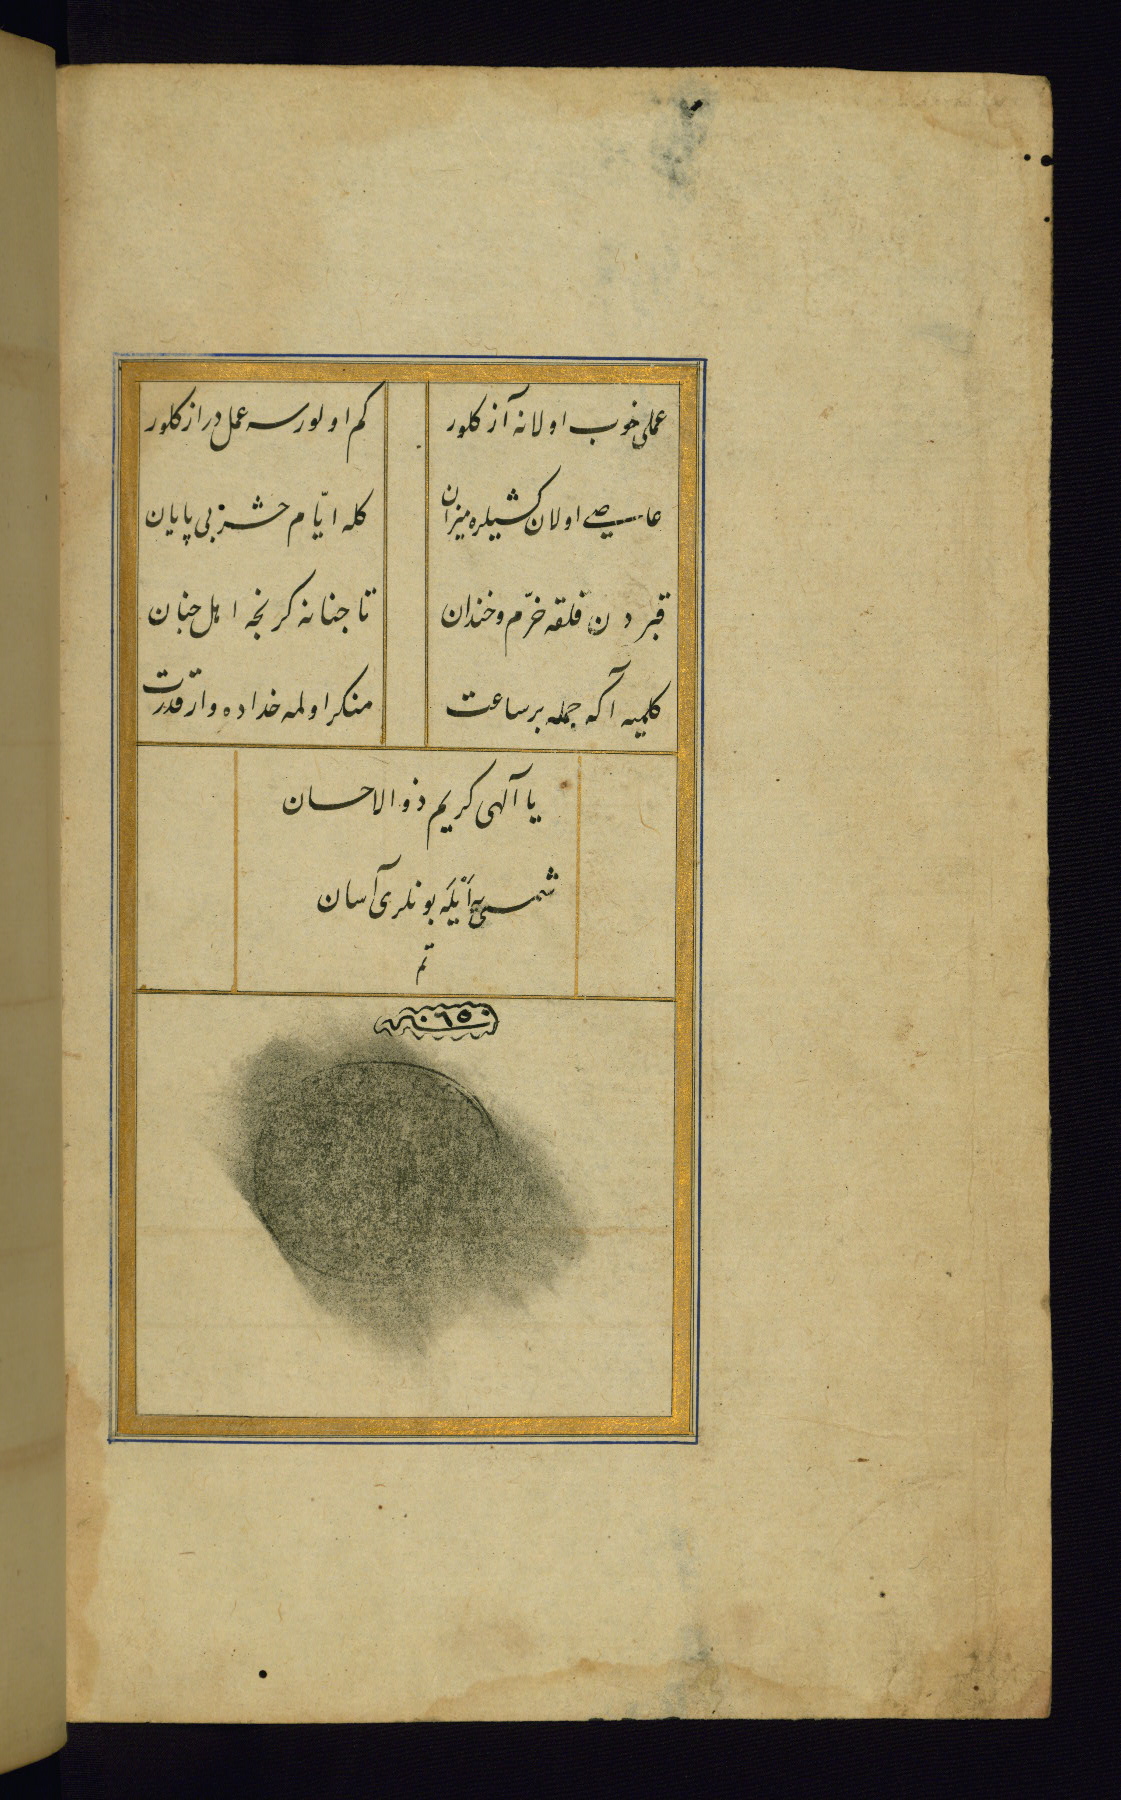 عملی خوب اولانه آز کلور
کم اولورسه عمل دراز کلور
عاصے اولان کشیلره میزان
کله ایّام حشر بی پایان
قبردن قلقه خرّم و خندان
تا جنانه کرنجه اهل جنان
کلمیه آکه جمله بر ساعت
منکر اولمه خداده وار قدرت
یا آلهی کریم ذو الاحسان
شمسی یه اَیْلَه بونلری آسان
تم